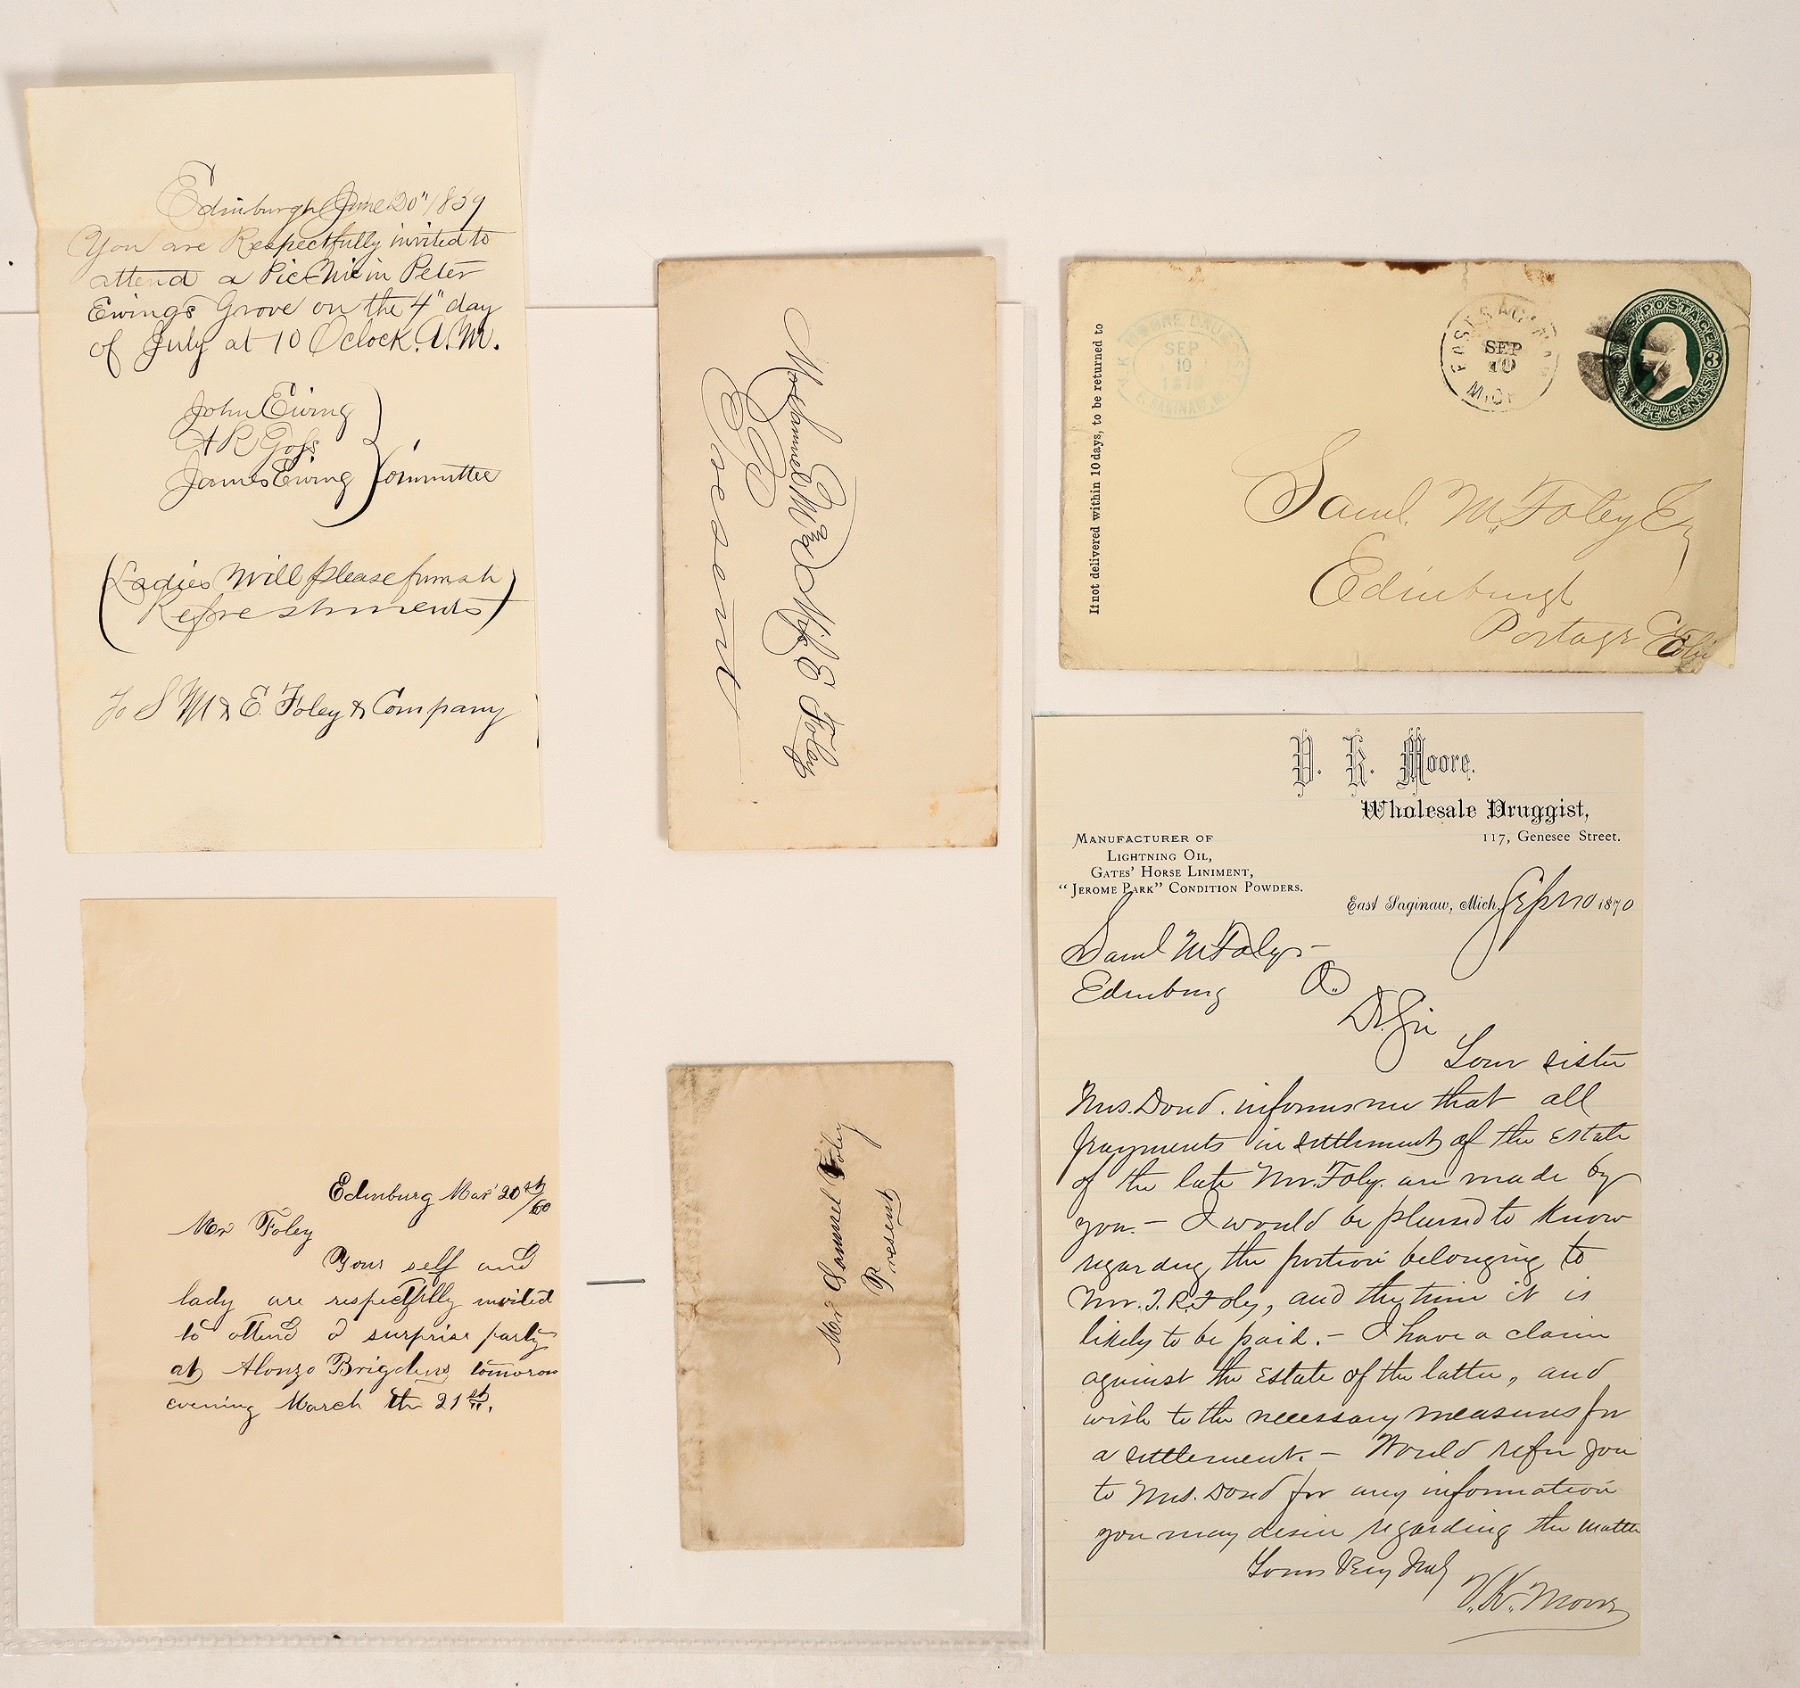 Edinburgh June 20" 1859
You are Respectfully invited to
attend a Pic Nic in Peter
Ewing's Grove on the 4" day
of July at 10 Oclock. A.M.
John Ewing
A R Goss
James Ewing
Committee
(Ladies Will please furnish
Refreshments)
To S M & E. Foley & Company
Mr Samuel M & E Foley
Present
If not delivered within 10 days, to be returned to
MOORE DRUGGIST
SEP
10
1870
E. SAGINAW, MI
EAST SAGINAW
SEP
10
MICH
U.S. POSTAGE
3
THREE CENTS
Saml. M. Foley Esq
Edinburgh
Portage Co
Ohio
Edinburg Mar' 20th/60
Mr Foley
Your self and
lady are respectfully invited
to attend a surprise party
at Alonzo Brigdens tomorow
evening March the 21st.
Mr Samuel Foley
Present
V. K. Moore.
Wholesale Druggist,
117, Genesee Street.
MANUFACTURER OF
LIGHTNING OIL,
GATES' HORSE LINIMENT,
"JEROME PARK" CONDITION POWDERS.
East Saginaw, Mich. Sept 10 1870
Saml M Foley -
Edinburg O.
Dr. Sir
Your sister
Mrs. Dowd. informs me that all
payments in settlement of the Estate
of the late Mr. Foley. are made by
you. - I would be pleased to know
regarding the portion belonging to
Mr. T. R. Foley, and the time it is
likely to be paid. - I have a claim
against the Estate of the latter, and
wish to the necessary measures for
a settlement. - Would refer you
to Mrs. Dowd for any information
you may desire regarding the matter
Yours Very Truly
V. K. Moore